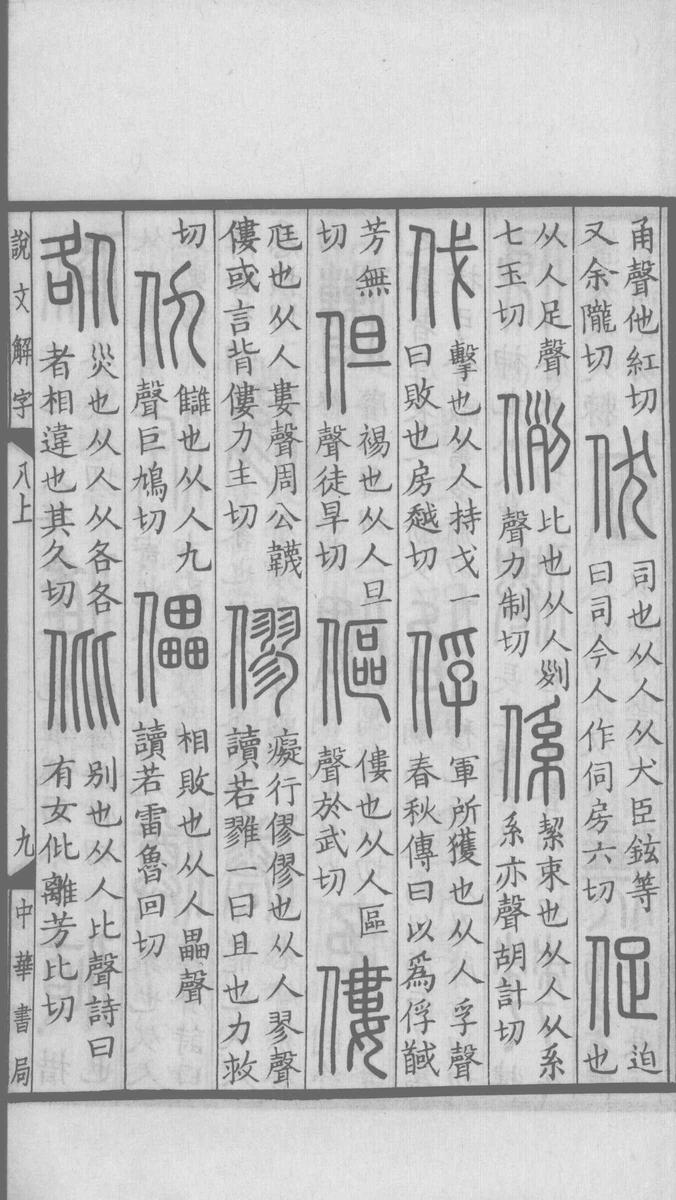 甬聲他紅切又余隴切伏司也从人从犬臣鉉等曰司今人作伺房六切促迫也
从人足聲七玉切例比也从人𠛱聲力制切係絜束也从人从系系亦聲胡計切
伐擊也从人持戈一曰敗也房越切俘軍所獲也从人孚聲春秋傳曰以爲俘馘
芳無切但裼也从人旦聲徒旱切傴僂也从人區聲於武切僂
尫也从人婁聲周公韤僂或言背僂力主切僇癡行僇僇也从人翏聲讀若雡一曰且也力救
切仇讎也从人九聲巨鳩切儡相敗也从人畾聲讀若雷魯回切
咎災也从人从各各者相違也其久切仳別也从人比聲詩曰有女仳離芳比切
說文解字 八上 九 中華書局